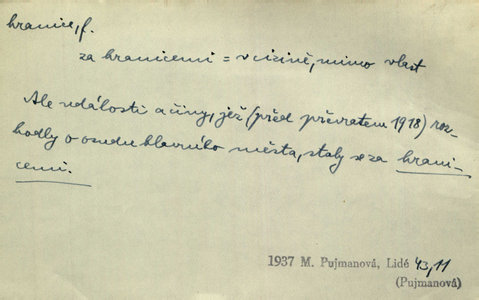 hranice, f.
za hranicemi = v cizině, mimo vlast
Ale události a činy, jež (před převratem 1918) roz-
hodly o osudu hlavního města, staly se za hrani-
cemi.
1937 M. Pujmanová, Lidé 43, 11
(Pujmanová)